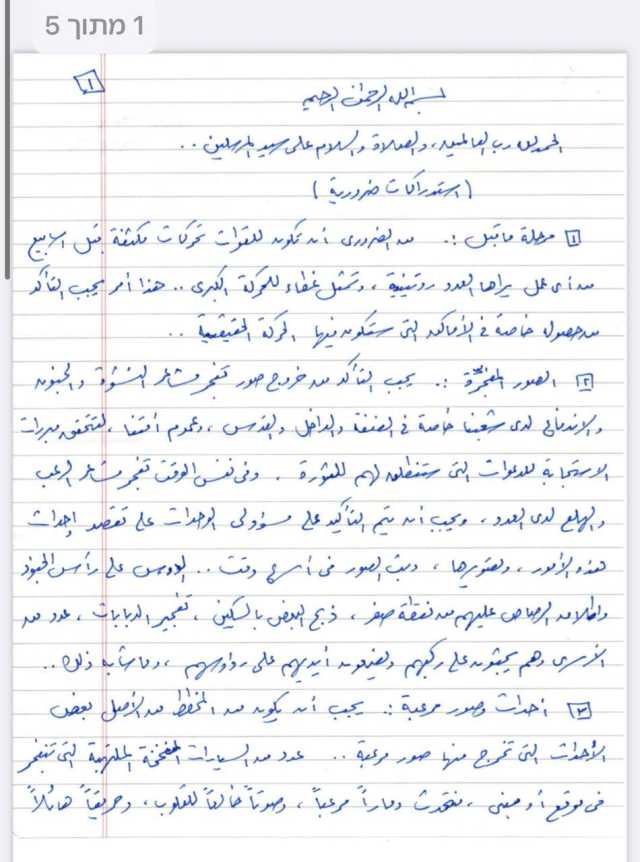 1 מתוך 5
١
بسم الله الرحمن الرحيم
الحمد لله رب العالمين، والصلاة والسلام على سيد المرسلين ..
( استدراكات ضرورية )
١ مرحلة ما قبل :. من الضروري أن تكون للقوات تحركات مكثفة قبل أسابيع
من أي عمل يراها العدو روتينية ، وتمثل غطاء للحركة الكبرى .. هذا أمر يجب التأكد
من حصوله خاصة في الأماكن التي ستكون فيها الحركة الحقيقية ..
٢ الصور المفجّرة :. يجب التأكد من خروج صور تفجر مشاعر النشوة والجنون
والاندفاع لدى شعبنا خاصة في الضفة والداخل والقدس ، وعموم أمتنا ، لتتحقق مبررات
الاستجابة للدعوات التي ستنطلق لهم للثورة . وفي نفس الوقت تفجر مشاعر الرعب
والهلع لدى العدو ، ويجب أن يتم التأكيد على مسؤولي الوحدات على تقصد إحداث
هذه الأمور ، وتصويرها ، وبث الصور في أسرع وقت .. الدوس على رأس الجنود
وإطلاق الرصاص عليهم من نقطة صفر ، ذبح البعض بالسكين ، تفجير الدبابات ، عدد من
الأسرى وهم يجثون على ركبهم ويضعون أيديهم على رؤوسهم ، وما شابه ذلك ..
٣ أحداث وصور مرعبة :. يجب أن يكون من المخطط من الأصل بعض
الأحداث التي تخرج منها صور مرعبة .. عدد من السيارات المفخخة الملتهبة التي تنفجر
في موقع أو مبنى ، فتحدث دماراً مرعباً ، وصوتاً خالعاً للقلوب ، وحريقاً هائلاً